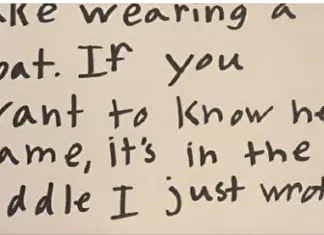 ake wearing a
oat. If you
ant to know he
ame, it's in the
ddle I just wrot